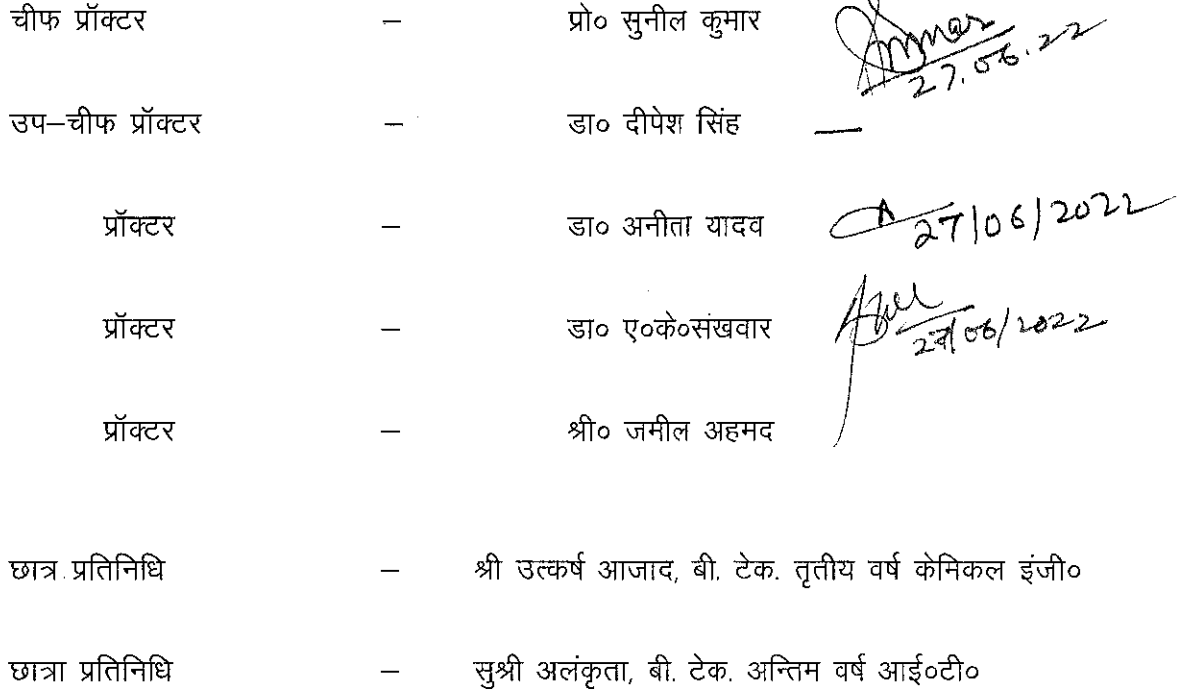 चीफ प्रॉक्टर – प्रो० सुनील कुमार
27.06.22
उप–चीफ प्रॉक्टर – डा० दीपेश सिंह —
प्रॉक्टर – डा० अनीता यादव 27/06/2022
प्रॉक्टर – डा० ए०के०संखवार 27/06/2022
प्रॉक्टर – श्री० जमील अहमद
छात्र प्रतिनिधि – श्री उत्कर्ष आजाद, बी. टेक. तृतीय वर्ष केमिकल इंजी०
छात्रा प्रतिनिधि – सुश्री अलंकृता, बी. टेक. अन्तिम वर्ष आई०टी०